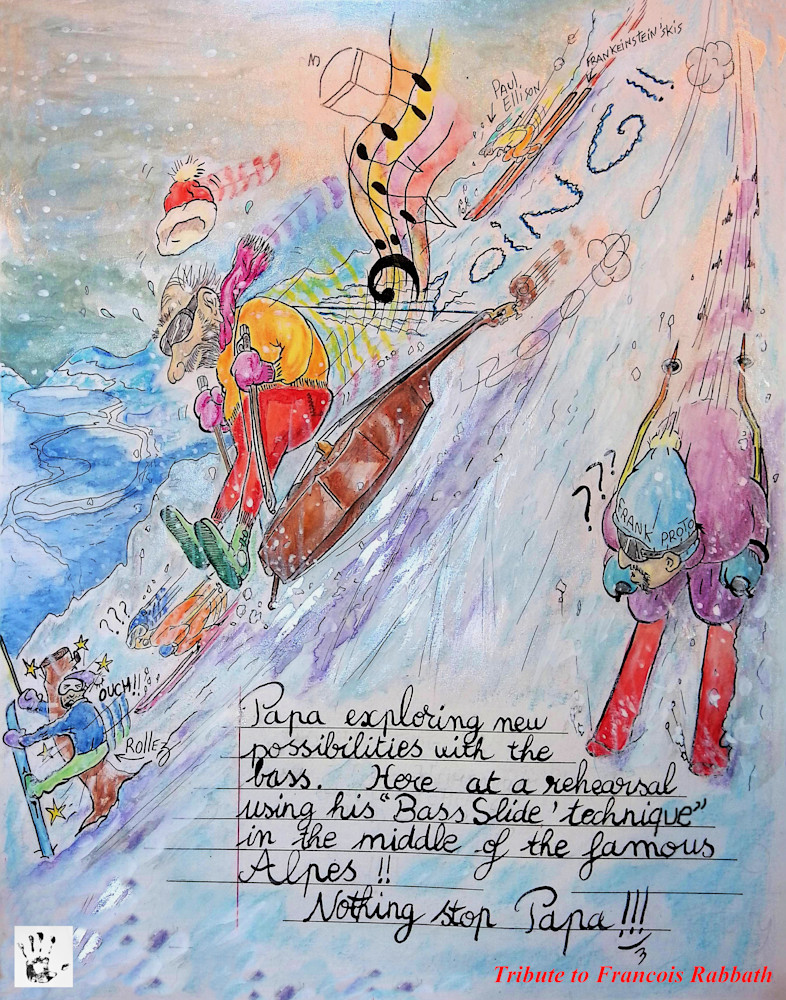 PAUL
ELLISON
FRANKEINSTEIN'SKIS
OiNG!!
???
FRANK PROTO
???
OUCH!!
ROLLEZ
Papa exploring new
possibilities with the
bass. Here at a rehearsal
using his "Bass Slide' technique"
in the middle of the famous
Alpes !!
Nothing stop Papa!!!
Tribute to Francois Rabbath